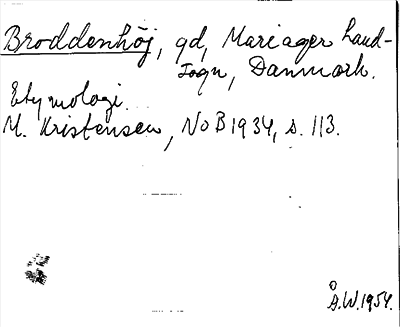 Broddenhöj, gd, Mariager land-
sogn, Danmark.
Etymologi.
M. Kristensen, NoB 1934, s. 113.
Å.W. 1954.